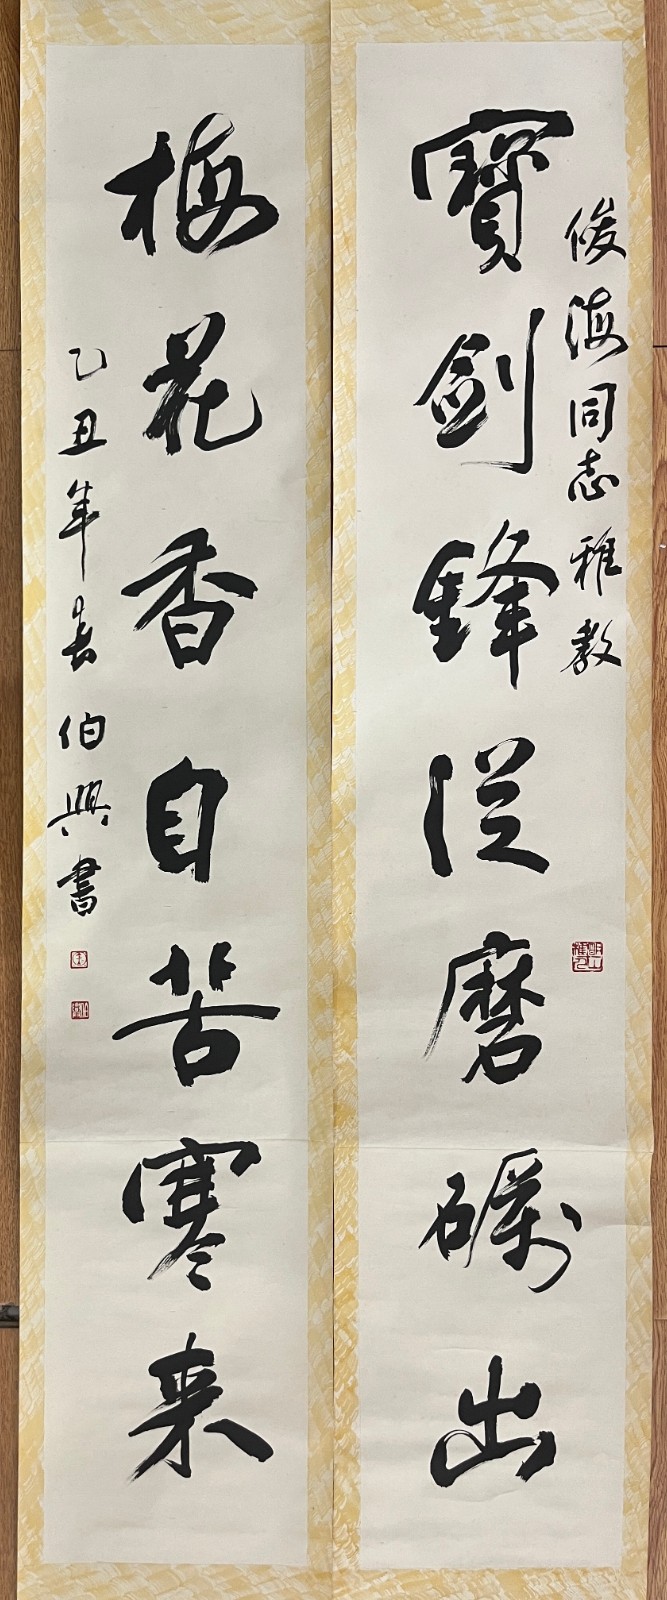 俊海同志雅教
寶劍鋒従磨礪出
梅花香自苦寒来
乙丑年春伯興書